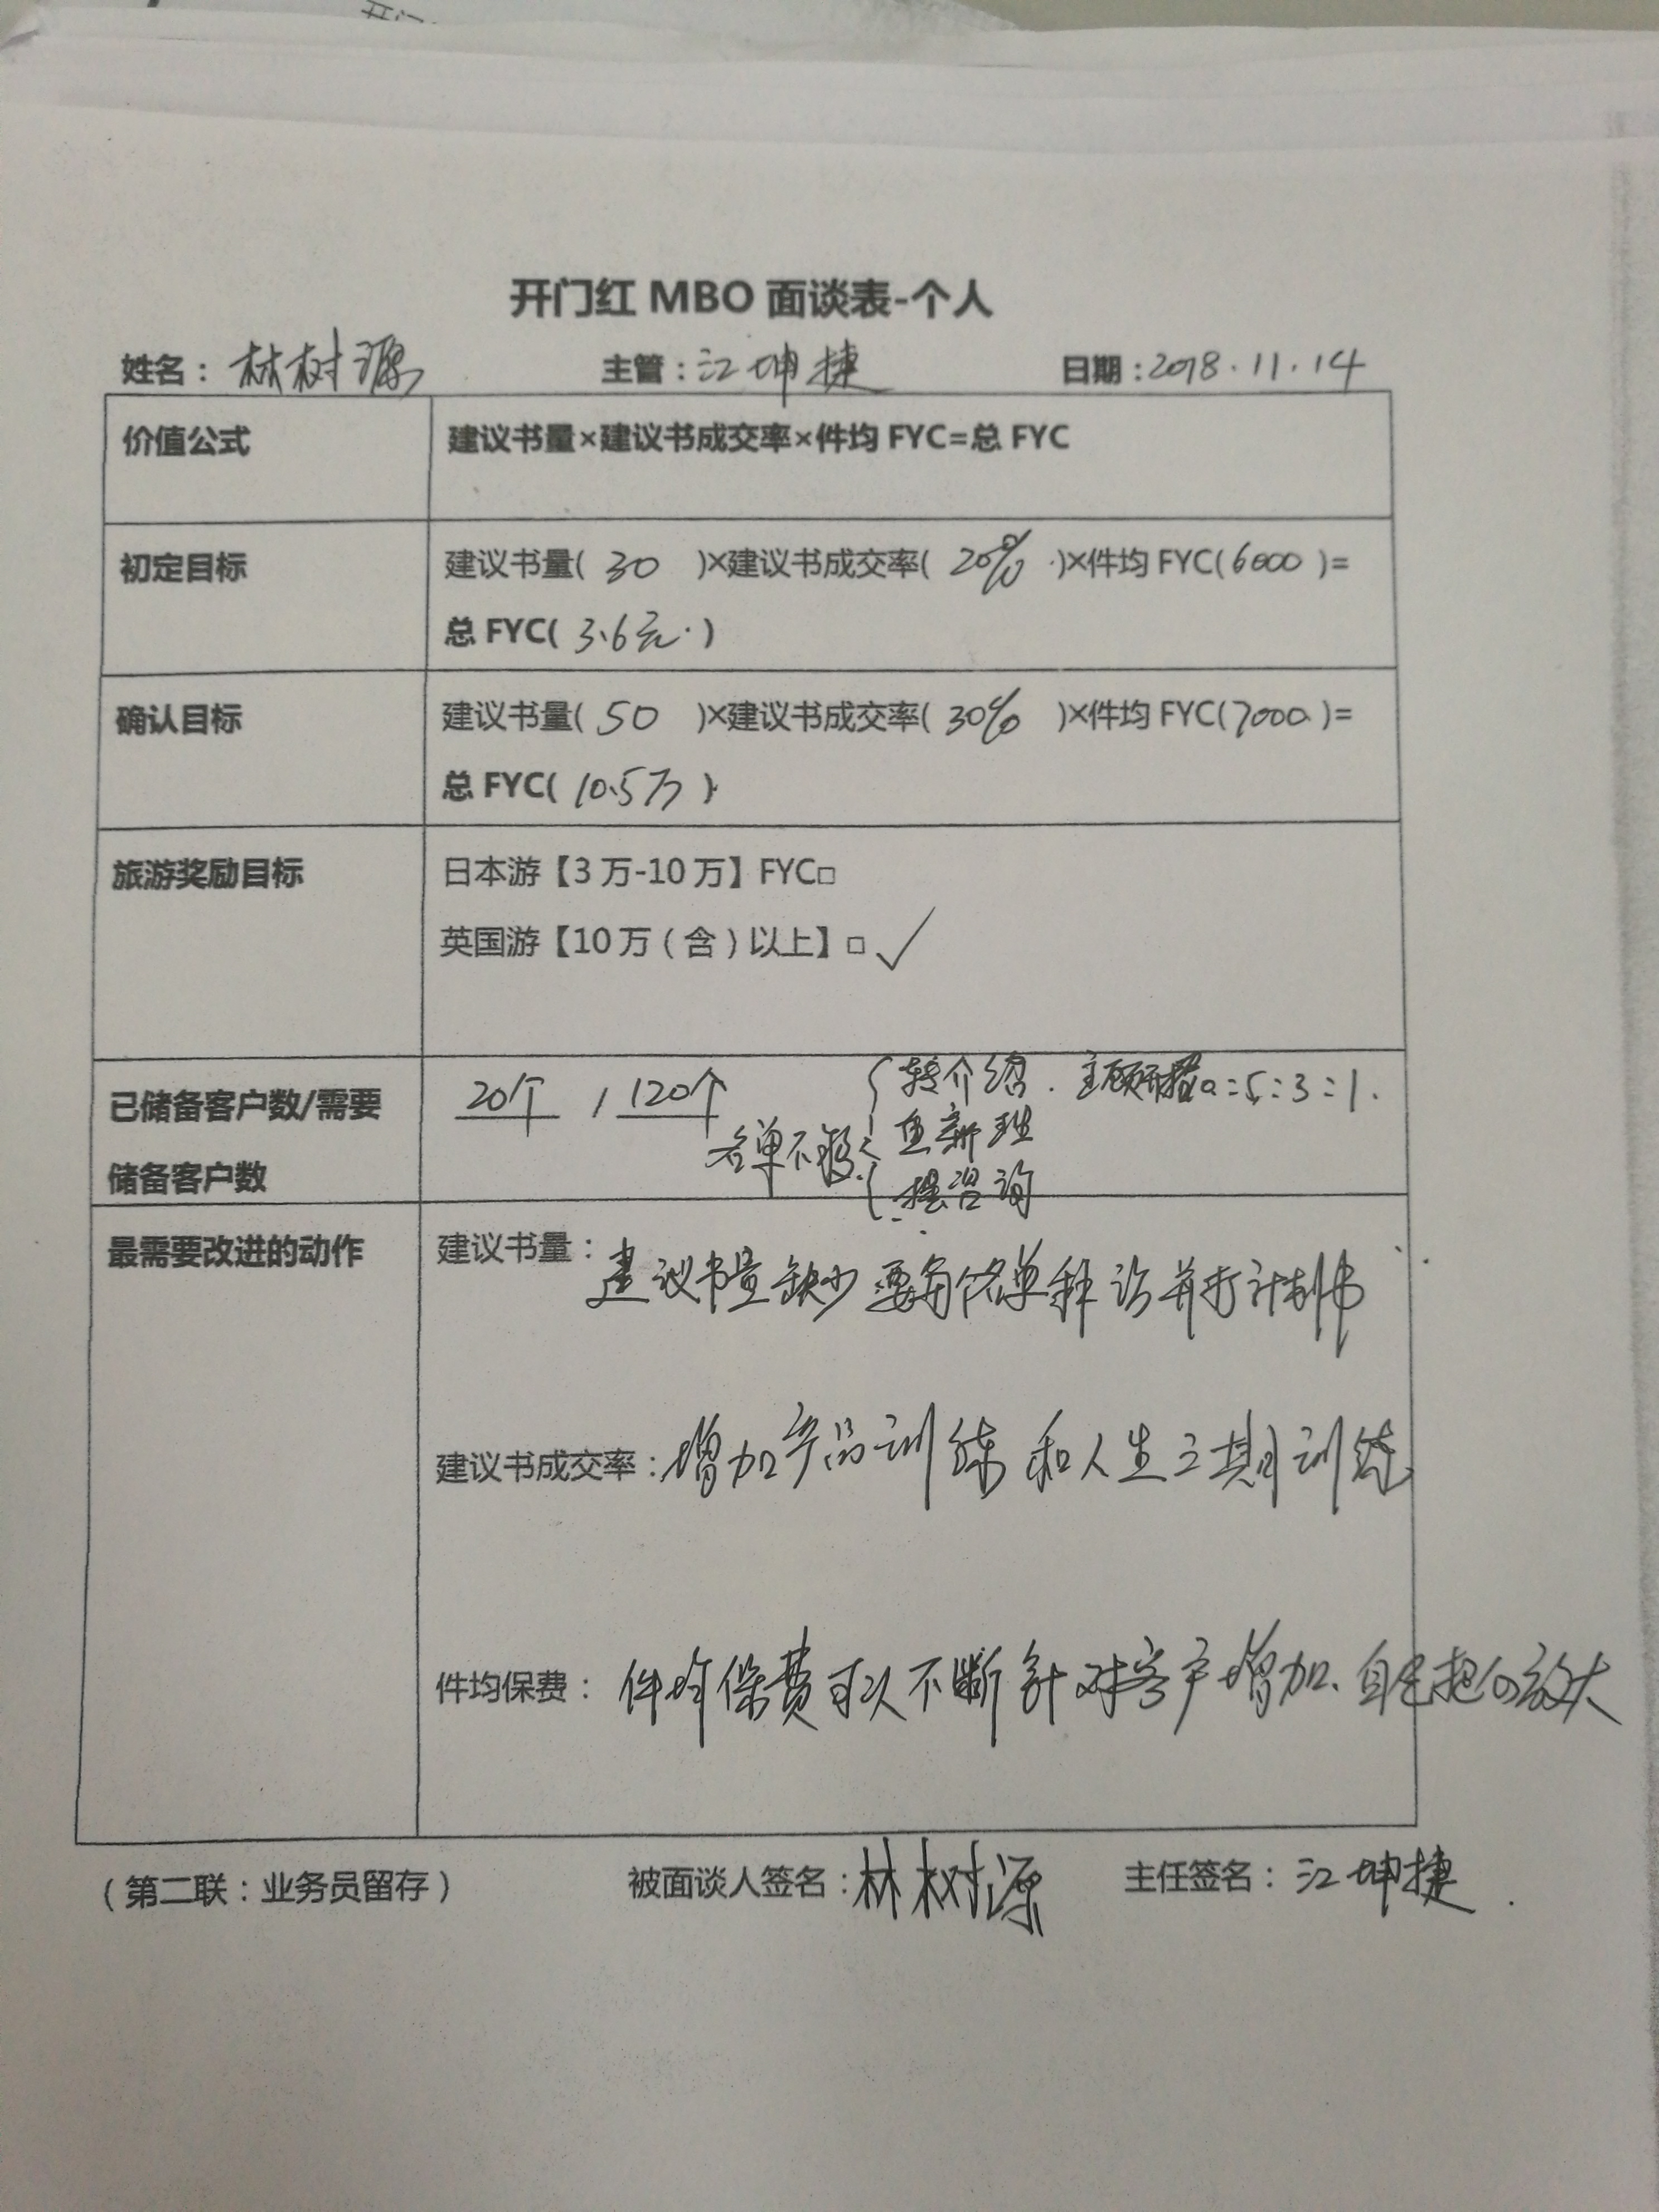 开门红 MBO 面谈表-个人
姓名：林树源 主管：江坤捷 日期：2018.11.14
价值公式 建议书量×建议书成交率×件均 FYC=总 FYC
初定目标 建议书量( 30 )×建议书成交率( 20% )×件均 FYC(6000 )=
总 FYC( 3.6万 )
确认目标 建议书量( 50 )×建议书成交率( 30% )×件均 FYC(7000 )=
总 FYC( 10.5万 )
旅游奖励目标 日本游【3 万-10 万】FYC□
英国游【10 万（含）以上】□ ✓
已储备客户数/需要 20个 / 120个 转介绍. 主顾开拓 =5:3:1.
储备客户数 名单不够 重新理
摆咨询
最需要改进的动作 建议书量：建议书量缺少 要每个名单 并打计划书
建议书成交率：增加产品训练 和人生三期训练
件均保费：件均保费可以不断针对客户增加. 自己把 放大
（第二联：业务员留存） 被面谈人签名：林树源 主任签名：江坤捷.